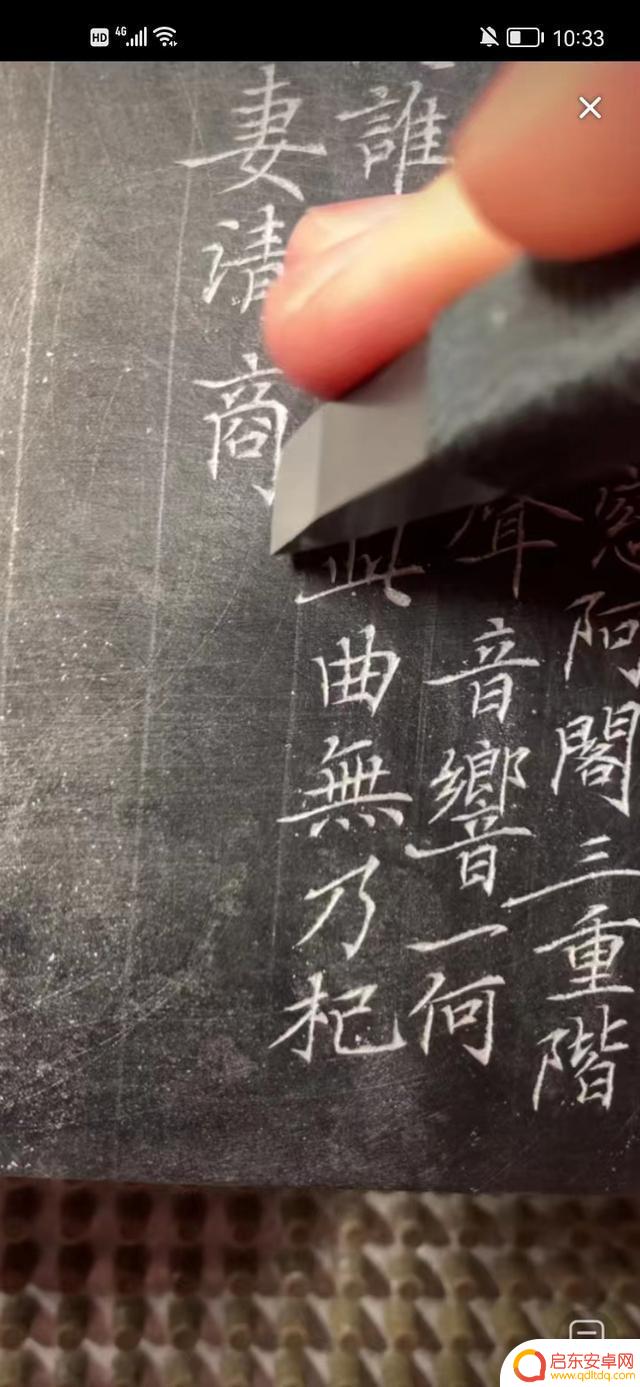 HD 4G 10:33
阿閣三重階
音響一何
誰 此曲無乃杞
妻清商
启东安卓网
www.qdltdq.com